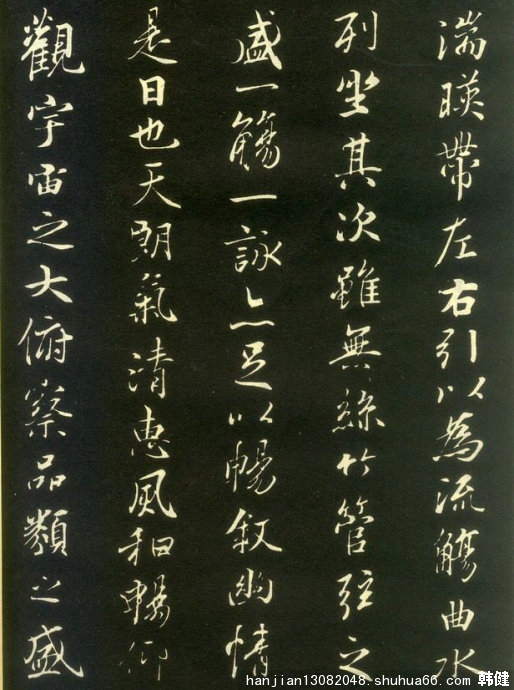 湍暎帶左右引以為流觴曲水
列坐其次雖無絲竹管弦之
盛一觴一詠亦足以暢叙幽情
是日也天朗氣清惠風和暢仰
觀宇宙之大俯察品類之盛
hanjian13082048.shuhua66.com 韩健